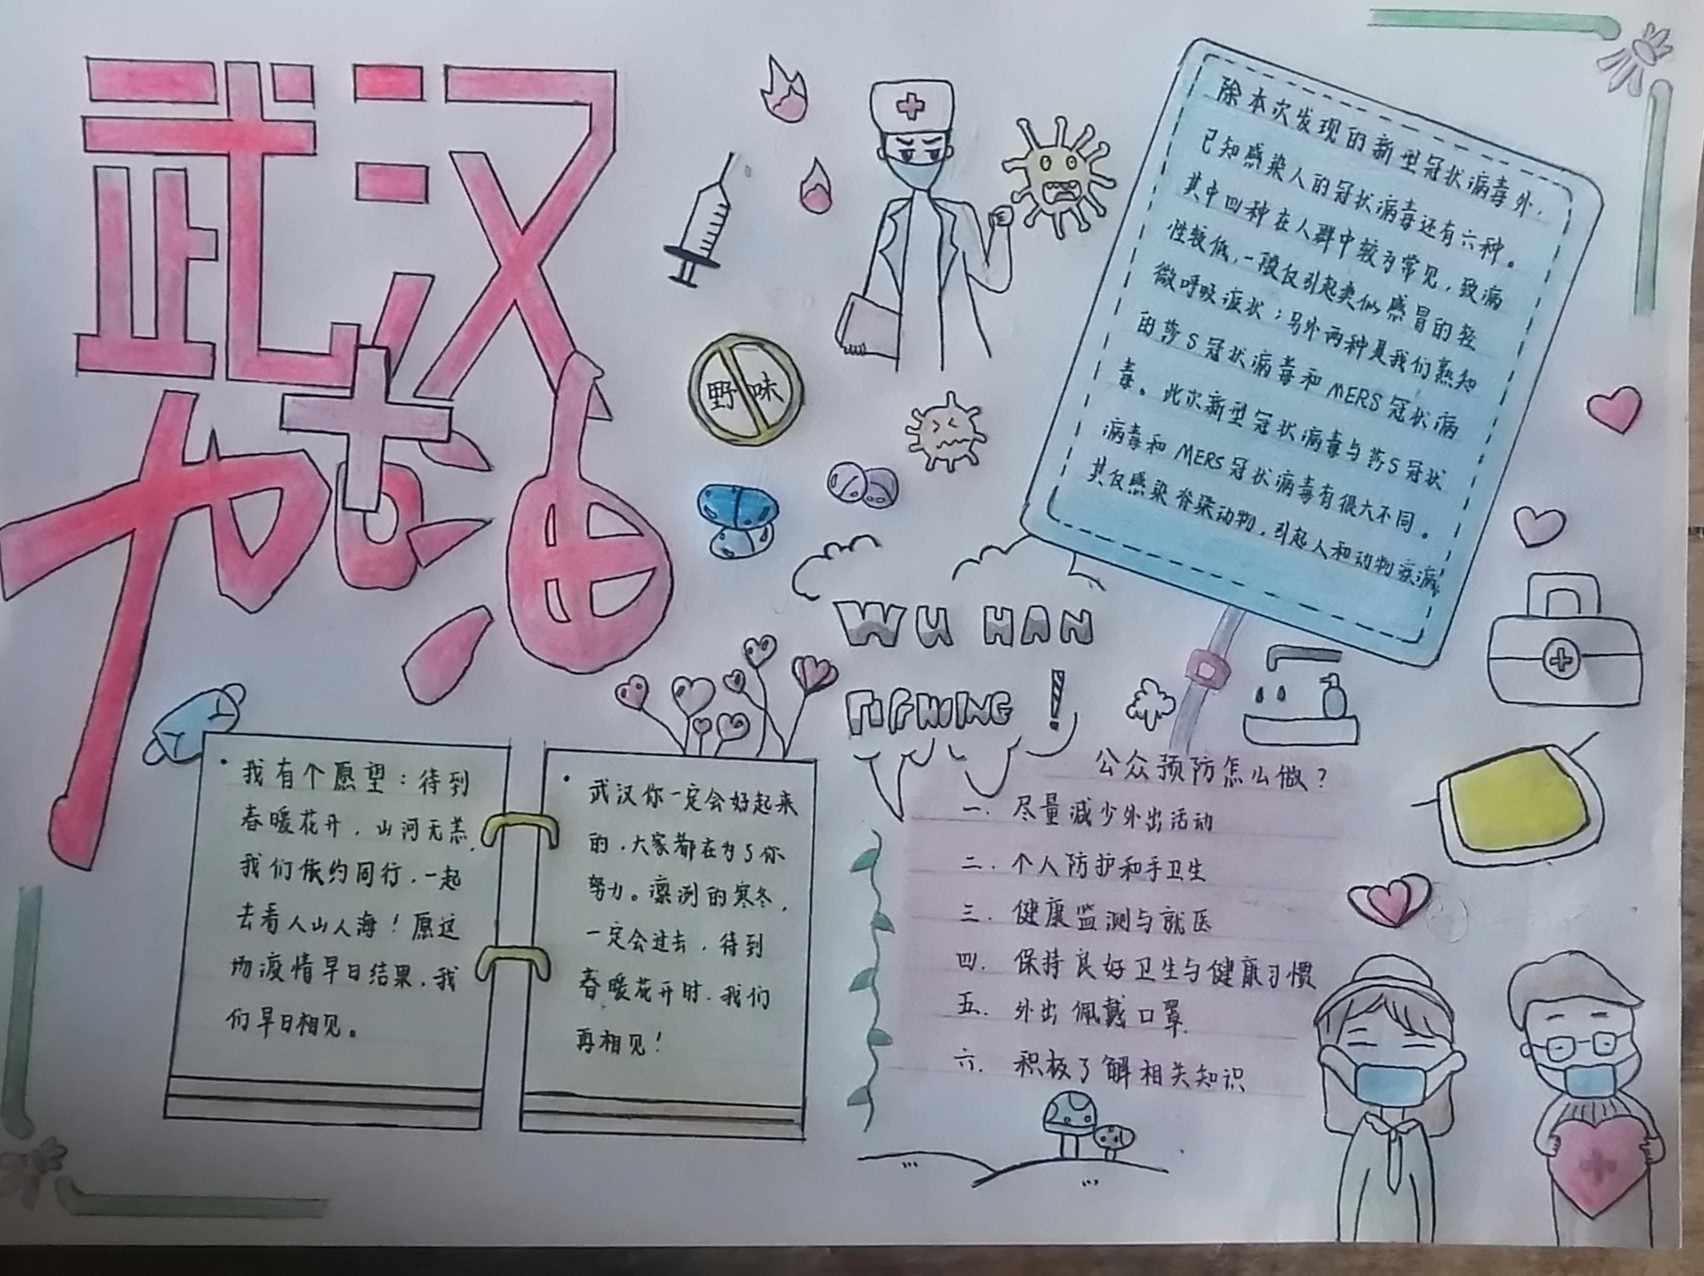 武汉
加油
除本次发现的新型冠状病毒外，
已知感染人的冠状病毒还有六种。
其中四种在人群中较为常见，致病
性较低，一般仅引起类似感冒的轻
微呼吸症状；另外两种是我们熟知
的莎S冠状病毒和MERS冠状病
毒。此次新型冠状病毒与莎S冠状
病毒和MERS冠状病毒有很大不同。
其仅感染脊梁动物，引起人和动物疾病
野味
WU HAN
！
我有个愿望：待到
春暖花开，山河无恙，
我们依约同行，一起
去看人山人海！愿这
场疫情早日结果，我
们早日相见。
武汉你一定会好起来
的，大家都在为了你
努力。凛冽的寒冬，
一定会过去，待到
春暖花开时，我们
再相见！
公众预防怎么做？
一．尽量减少外出活动
二．个人防护和手卫生
三．健康监测与就医
四．保持良好卫生与健康习惯
五．外出佩戴口罩
六．积极了解相关知识